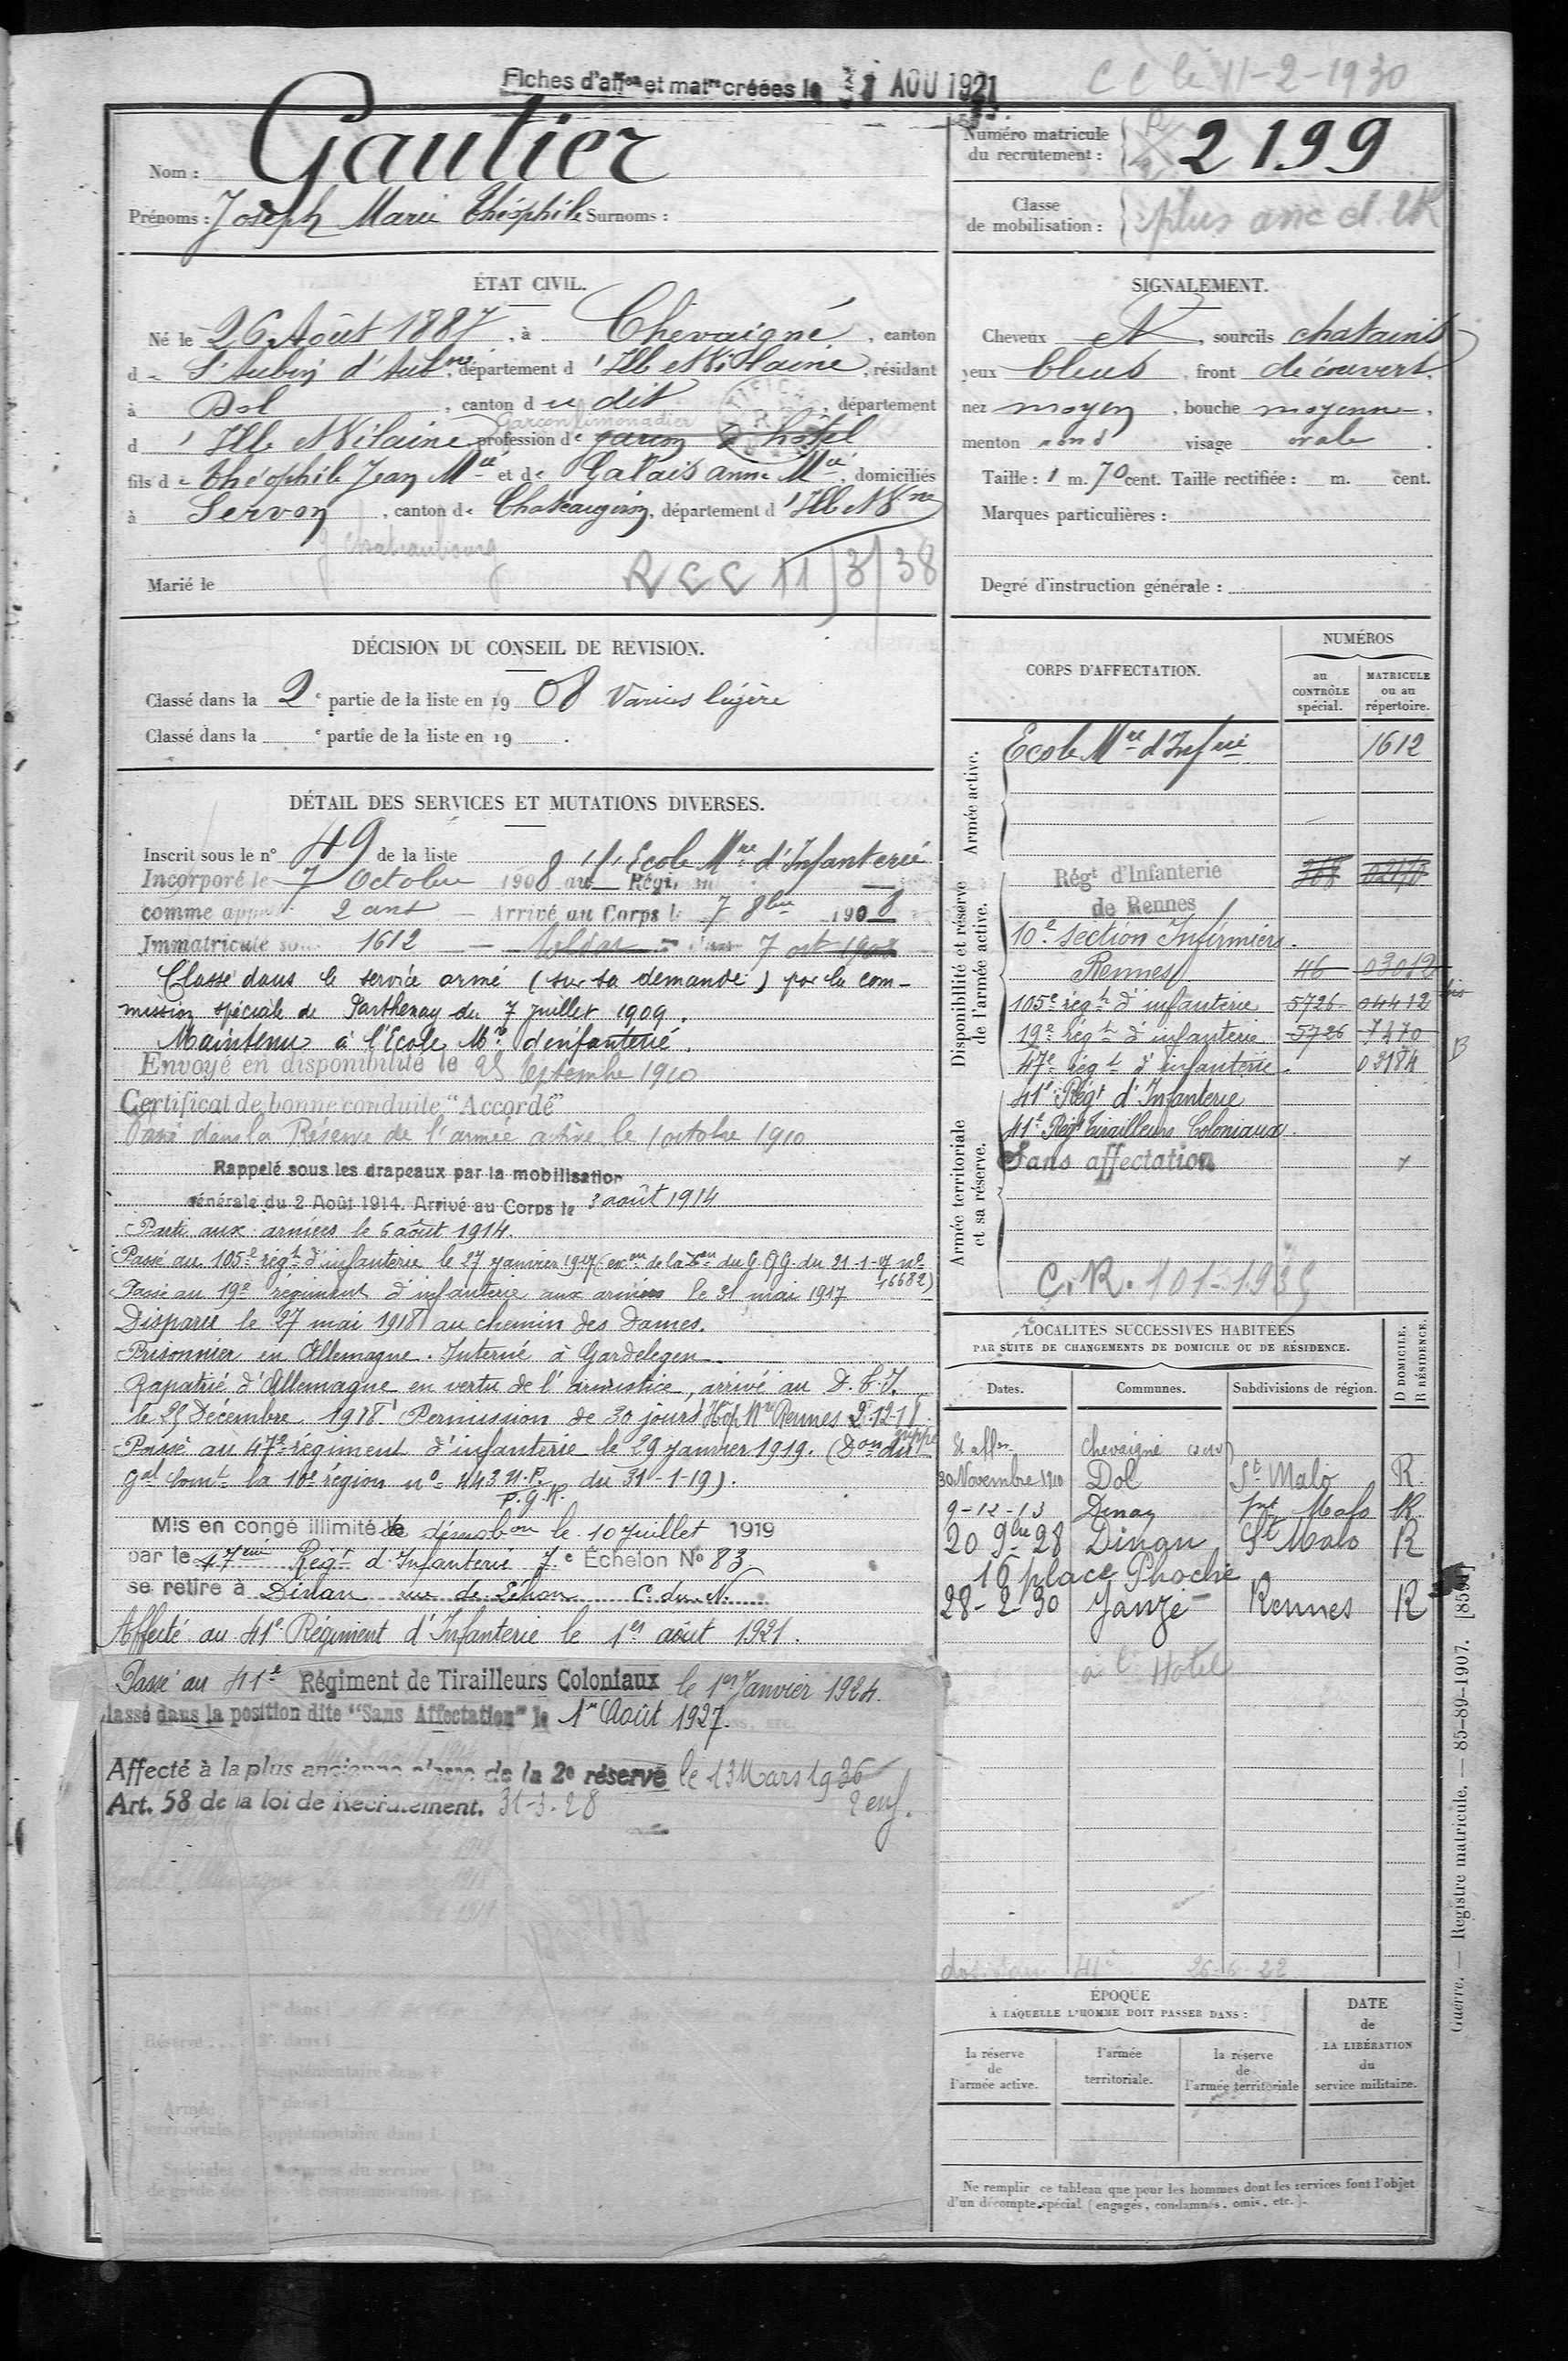 Fiches d'affon et matre créées le 1 AOU 1921
C C le 11-2-1930
Nom : Gautier
Prénoms : Joseph Marie Théophile Surnoms :
Numéro matricule du recrutement : 2199
Classe de mobilisation : plus anc cl. 2R
ÉTAT CIVIL.
Né le 26 Août 1887, à Chevaigné, canton
d St Aubin d'Aubné, département d'Ille et Vilaine, résidant
à Dol, canton du dit, département
Garçon limonadier
d'Ille et Vilaine, profession de garçon d'hôtel
fils de Théophile Jean Mie et de Galais Anne Mie, domiciliés
à Servon, canton de Chateaugiron, département d'Ille et Vne
Chateaubourg
Marié le
RCC 11/3/38
SIGNALEMENT.
Cheveux et, sourcils chatains
yeux bleus, front découvert,
nez moyen, bouche moyenne,
menton rond visage ovale.
Taille : 1 m. 70 cent. Taille rectifiée : m. cent.
Marques particulières :
Degré d'instruction générale :
DÉCISION DU CONSEIL DE REVISION.
Classé dans la 2e partie de la liste en 1908 Varices légère
Classé dans la e partie de la liste en 19 .
DÉTAIL DES SERVICES ET MUTATIONS DIVERSES.
Inscrit sous le n° 49 de la liste
Incorporé le 7 Octobre 1908 à l'Ecole Mre d'Infanterie
comme appelé 2 ans — Arrivé au Corps le 7 8bre 1908
Immatriculé sous 1612 — Soldat 7 oct 1908
Classé dans le service armé (sur sa demande) par la com-
mission spéciale de Parthenay du 7 juillet 1909.
Maintenu à l'Ecole Mre d'infanterie.
Envoyé en disponibilité le 25 Septembre 1910
Certificat de bonne conduite "Accordé"
Passé dans la Réserve de l'armée active le 1 octobre 1910
Rappelé sous les drapeaux par la mobilisation
générale du 2 Août 1914. Arrivé au Corps le 3 août 1914
Parti aux armées le 6 août 1914.
Passé au 105e régt d'infanterie le 27 janvier 1917 (exon de la Don du G.Q.G. du 21-1-17 no
16682)
Passé au 19e régiment d'infanterie aux armées le 31 mai 1917
Disparu le 27 mai 1918 au chemin des Dames.
Prisonnier en Allemagne. Interné à Gardelegen.
Rapatrié d'Allemagne en vertu de l'armistice, arrivé au D.C.I.
le 25 Décembre 1918. Permission de 30 jours Hop Mre Rennes
Passé au 47e régiment d'infanterie le 29 janvier 1919. (Don du
gal Comt la 10e région no 443 U.P. du 31-1-19).
P.G.R.
Mis en congé illimité de démobon le 10 Juillet 1919
par le 47eme Régt d'Infanterie 7e Échelon No 83
se retire à Dinan rue de Léhon C. du N.
Affecté au 41e Régiment d'Infanterie le 1er août 1921.
Passé au 41e Régiment de Tirailleurs Coloniaux le 1er Janvier 1924.
lassé dans la position dite "Sans Affectation" le 1er Août 1927.
Affecté à la plus ancienne classe de la 2e réserve le 13 Mars 1936
Art. 58 de la loi de Recrutement. 31-3-28 2 enf.
CORPS D'AFFECTATION.
NUMÉROS
au CONTRÔLE spécial.
MATRICULE ou au répertoire.
Armée active.
Ecole Mre d'Infrie 1612
Disponibilité et réserve de l'armée active.
Régt d'Infanterie 368
de Rennes
10e Section Infirmiers
Rennes 46 03012
105e régt d'infanterie 5726 04412 bis
19e régt d'infanterie 5726 7470
47e régt d'infanterie 03184
Armée territoriale et sa réserve.
41e Régt d'Infanterie
41e Régt Tirailleurs Coloniaux
Sans affectation
LOCALITÉS SUCCESSIVES HABITÉES
PAR SUITE DE CHANGEMENTS DE DOMICILE OU DE RÉSIDENCE.
D DOMICILE. R RÉSIDENCE.
Dates. Communes. Subdivisions de région.
Chevaigné
30 Novembre 1910 Dol St Malo R
9-12-13 Dinan Snt Malo R
20 9bre 28 Dinan St Malo R
16 place Phoche
28-2-30 Janzé Rennes R
à l'Hotel
41e
ÉPOQUE
À LAQUELLE L'HOMME DOIT PASSER DANS :
la réserve de l'armée active.
l'armée territoriale.
la réserve de l'armée territoriale
DATE de LA LIBÉRATION du service militaire.
Ne remplir ce tableau que pour les hommes dont les services font l'objet
d'un décompte spécial (engagés, condamnés, omis, etc.).
Guerre. — Registre matricule. — 85-89-1907. [8591]